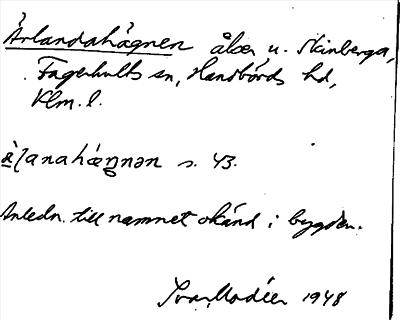 Ärlandahägnen åker, u. Skinberga,
Fagerhults sn, Handbörds hd,
Klm. l.
s. 43.
Anledn. till namnet okänd i bygden.
Ivar Modéer 1948